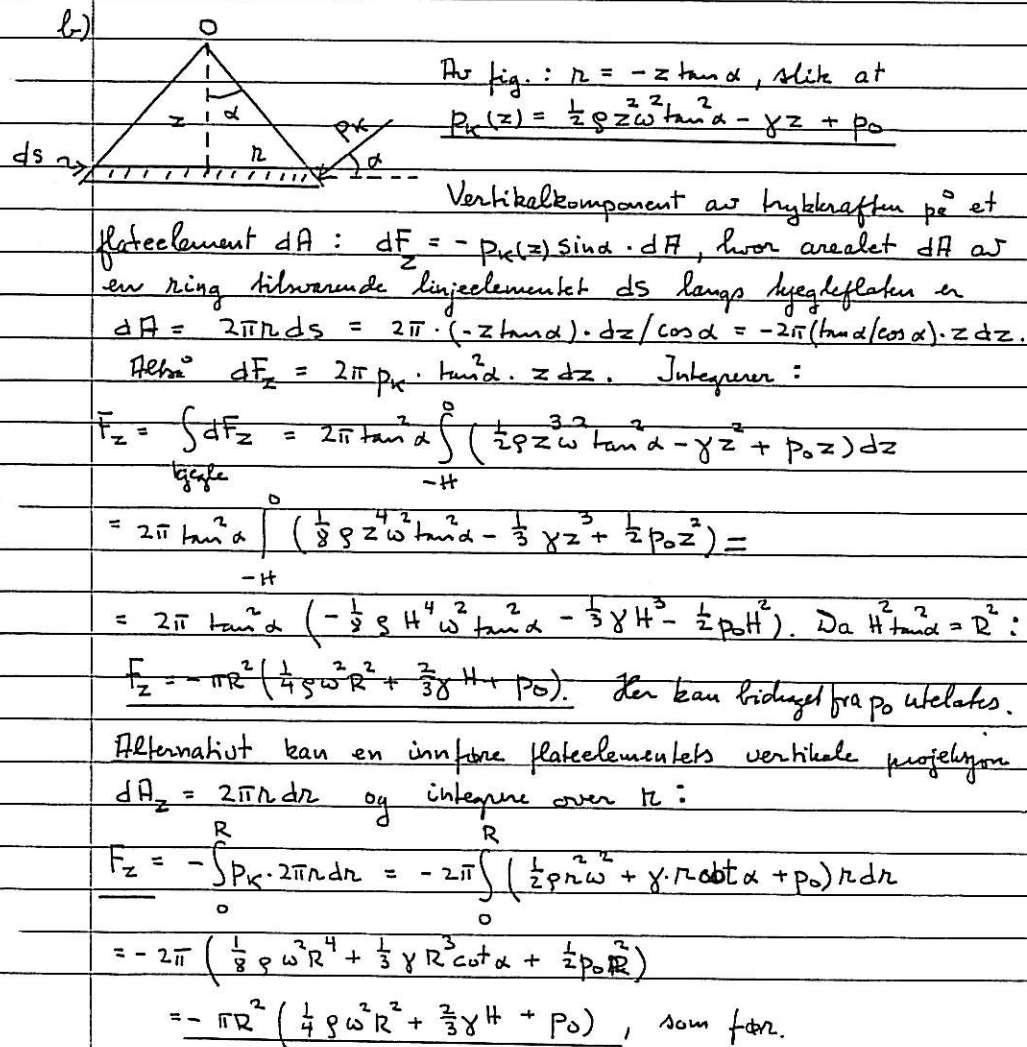 b)
O
Av fig.: r = -z tan α, slik at
p_K(z) = ½ ρ z² ω² tan² α - γz + p₀
z α r p_K α
ds
Vertikalkomponent av trykkraften på et
flateelement dA : dF_z = -p_K(z) sin α · dA, hvor arealet dA av
en ring tilsvarende linjeelementet ds langs kjegleflaten er
dA = 2πr ds = 2π · (-z tan α) · dz/cos α = -2π(tan α/cos α) · z dz.
Altså dF_z = 2π p_K · tan² α · z dz. Integrerer :
F_z = ∫_kjegle dF_z = 2π tan² α ∫_{-H}^{0} (½ ρ z³ ω² tan² α - γz² + p₀ z) dz
= 2π tan² α |_{-H}^{0} (⅛ ρ z⁴ ω² tan² α - ⅓ γ z³ + ½ p₀ z²) =
= 2π tan² α (-⅛ ρ H⁴ ω² tan² α - ⅓ γ H³ - ½ p₀ H²). Da H² tan² α = R² :
F_z = -πR² (¼ ρ ω² R² + ⅔ γ H + p₀). Her kan bidraget fra p₀ utelates.
Alternativt kan en innføre flateelementets vertikale projeksjon
dA_z = 2πr dr og integrere over r :
F_z = -∫_{0}^{R} p_K · 2πr dr = -2π ∫_{0}^{R} (½ ρ r² ω² + γ · r cot α + p₀) r dr
= -2π (⅛ ρ ω² R⁴ + ⅓ γ R³ cot α + ½ p₀ R²)
= -πR² (¼ ρ ω² R² + ⅔ γ H + p₀), som før.